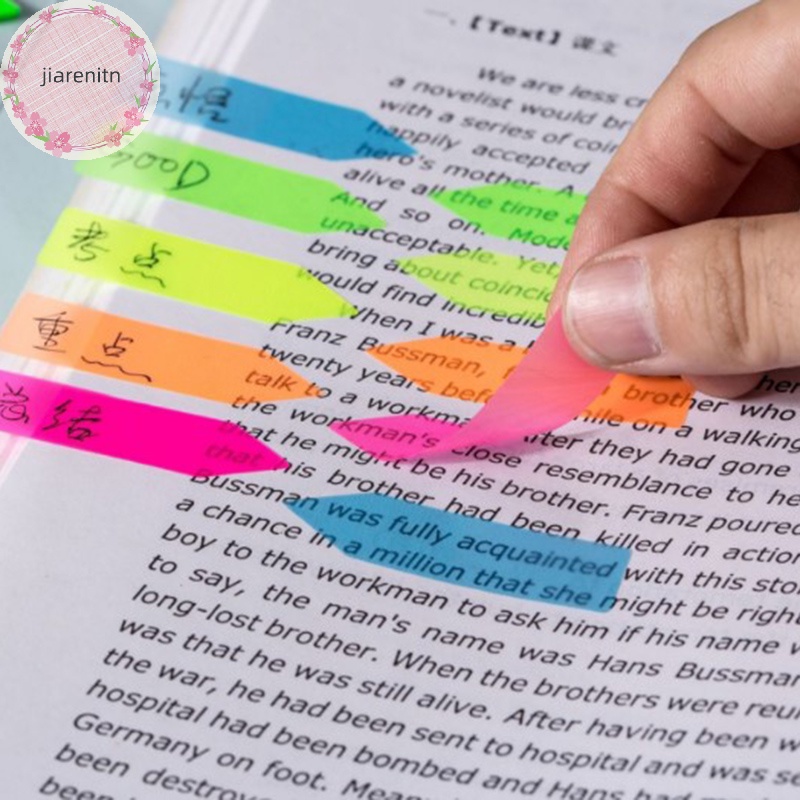 jiarenitn
一、【Text】课文
We are less cr
a novelist would br
with a series of coin
happily accepted
hero's mother. A
alive all the time a
And so on. Mode
unacceptable. Yet,
bring about coincid
would find incredib
When I was a
Franz Bussman, brother who
twenty years before on a walking
talk to a workma After they had gone
the workman's close resemblance to he
that he might be his brother. Franz poured
that his brother had been killed in action
Bussman was fully acquainted with this sto
a chance in a million that she might be right
boy to the workman to ask him if his name w
to say, the man's name was Hans Bussman
long-lost brother. When the brothers were reu
was that he was still alive. After having been w
the war, he had been sent to hospital and was se
hospital had been bombed and Hans had
Germany on foot. Mean
been destroye
been
悟
GOOD
考点
重点
总结